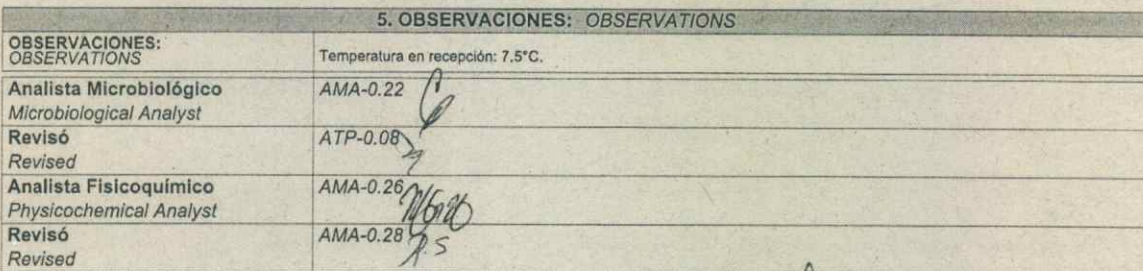 5. OBSERVACIONES: OBSERVATIONS
OBSERVACIONES:
OBSERVATIONS
Temperatura en recepción: 7.5°C.
Analista Microbiológico
Microbiological Analyst
AMA-0.22
Revisó
Revised
ATP-0.08
Analista Fisicoquímico
Physicochemical Analyst
AMA-0.26
Revisó
Revised
AMA-0.28